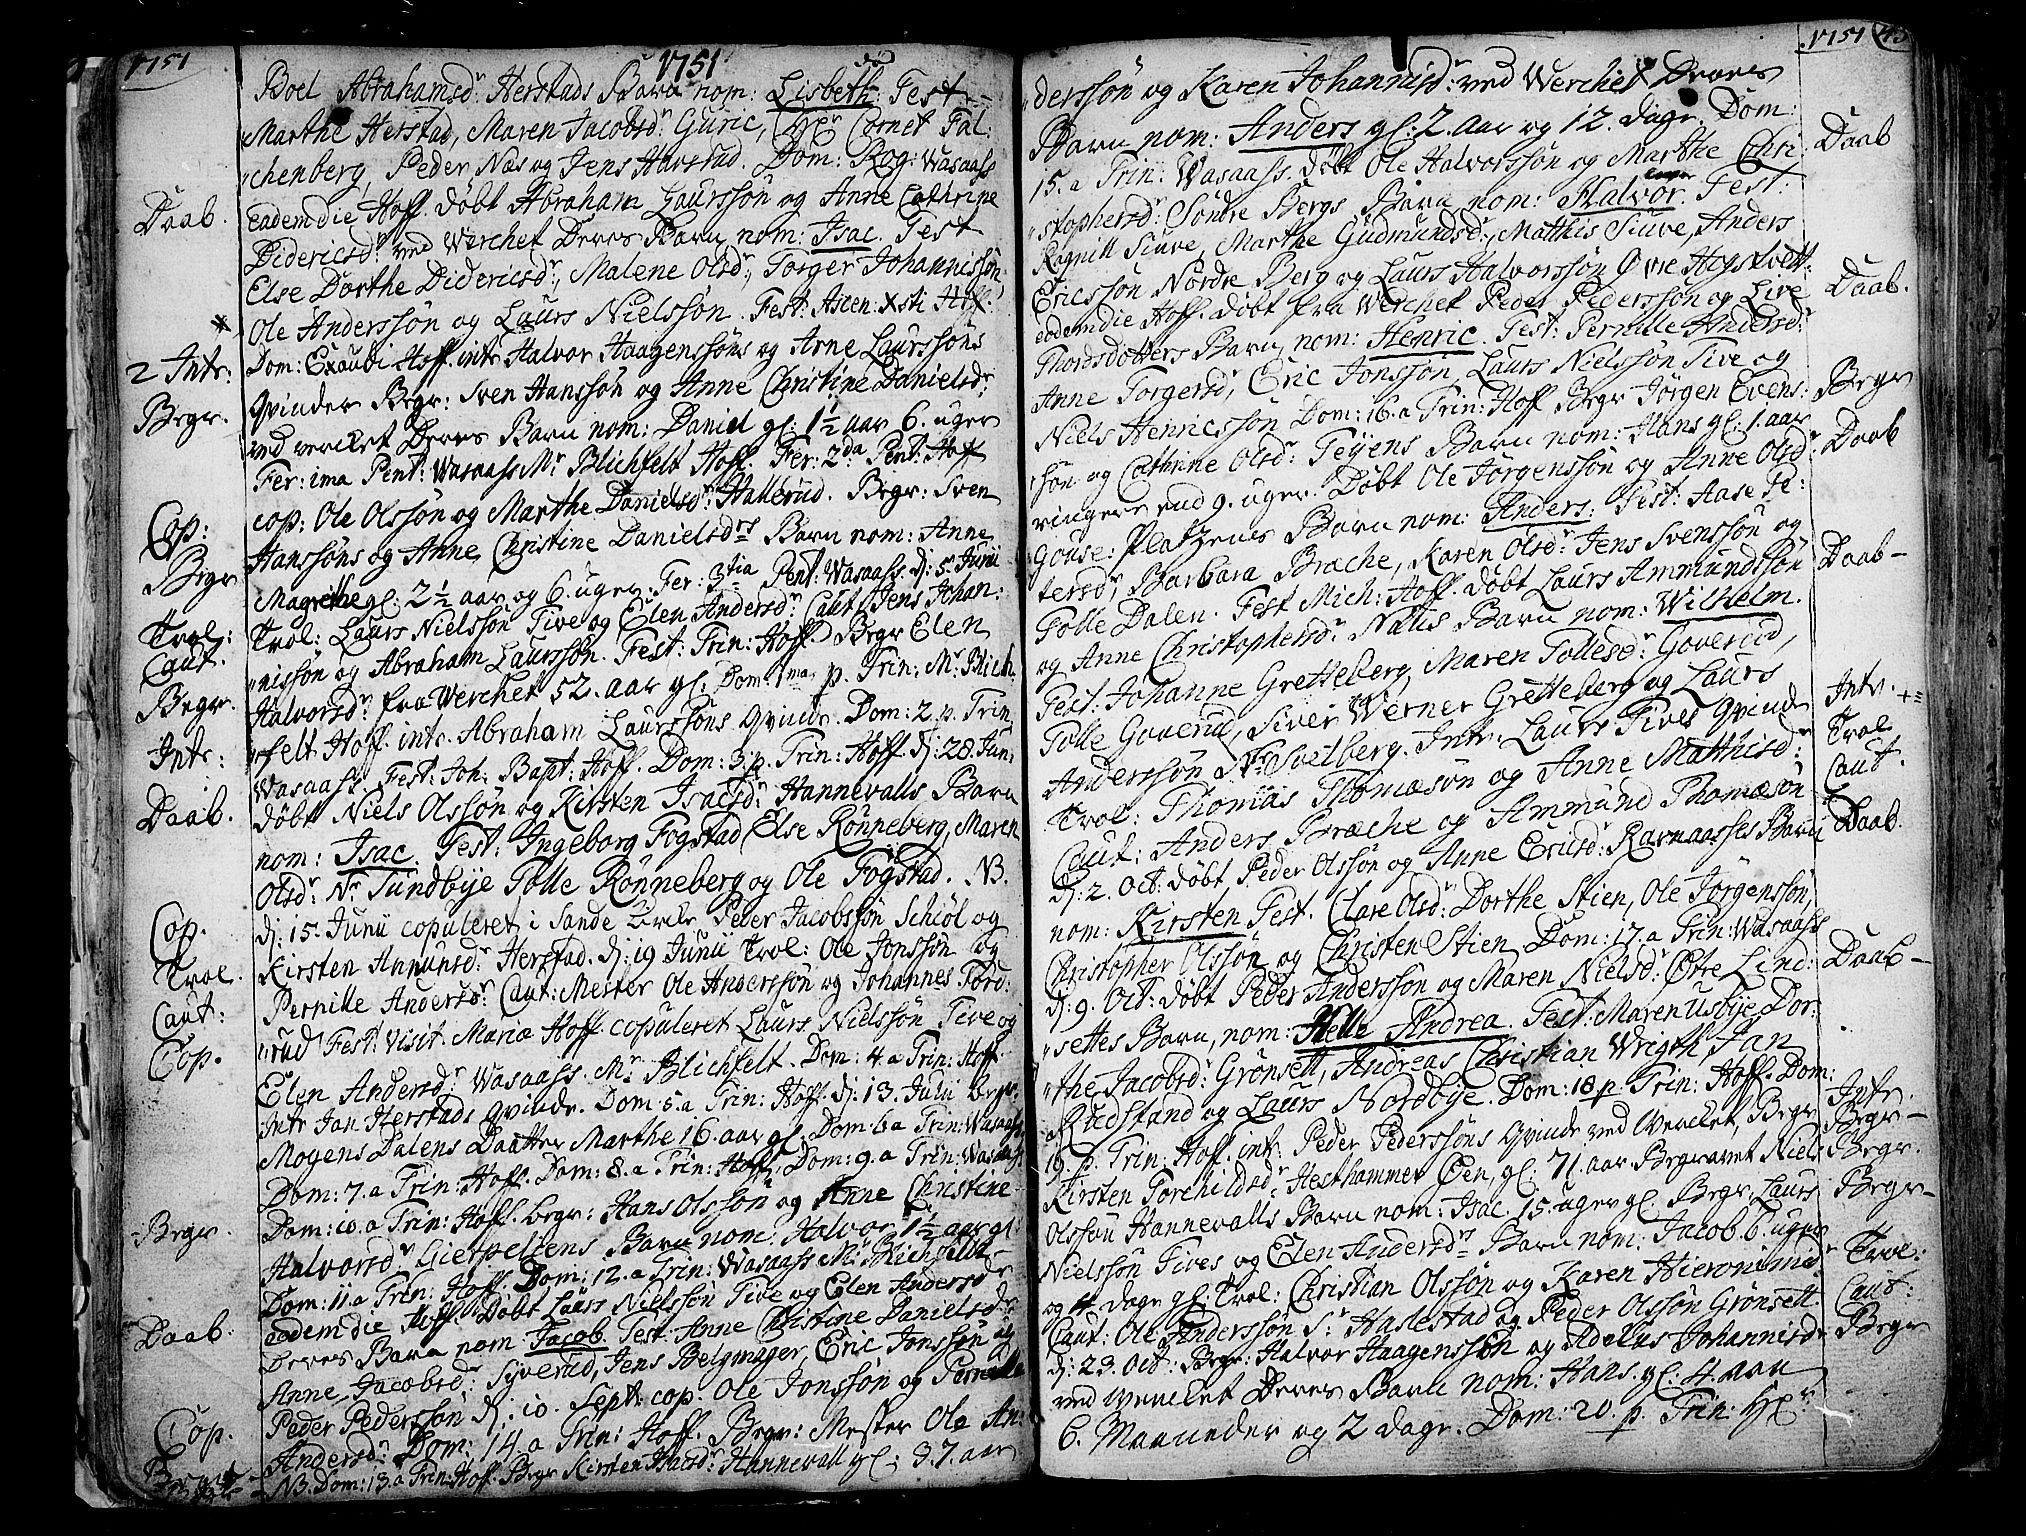 1751
1751
Boel Abrahamsdr. Herstads Barn nom: Lisbeth. Test:
Marthe Herstad, Maren Jacobsdr. Guric, Hr Cornet Fal:
"chenberg, Peder Næs og Jens Harstad. Dom: Rog: Wasaass
Daab.
eademdie Hoff. døbt Abraham Laurssøn og Anne Cathrine
Didericsdr. ved Werchet Deres Barn nom: Isac. Test
Else Dorthe Didericsdr., Malene Olsdr., Torger Johannissøn,
Ole Anderssøn og Laurs Nielssøn. Fest: Ascen: Xsti Hoff.
2 Intr:
Dom: Exaudi Hoff. intr. Halvor Haagenssøns og Arne Laurssøns
Begr.
Qvinder Begr: Sven Hanssøn og Anne Christine Danielsdr.
ved verchet Deres Barn nom: Daniel gl: 1½ aar 6. uger
Fer: 1ma Pent: Wasaass Mr. Blichfelt Hoff. Fer: 2da Pent: Hoff
Cop:
cop: Ole Olssøn og Marthe Danielsdr. Hallerud. Begr: Sven
Begr
Hanssøns og Anne Christine Danielsdrs Barn nom: Anne
Magrethe gl: 2½ aar og 6. uger. Fer: 3tia Pent: Wasaass. d: 5. Junii
Trol:
Trol: Laurs Nielssøn Tive og Elen Andersdr. Caut. Jens Johan:
Caut.
"nissøn og Abraham Laurssøn. Fest: Trin: Hoff Begr Elen
Begr.
Halvorsdr. fra Werchet 52. aar gl. Dom: 1ma p. Trin: Mr. Blich
Intr:
"felt Hoff. intr. Abraham Laurssøns Qvinde. Dom: 2. p. Trin
Wasaass. Fest: Joh: Bapt: Hoff. Dom: 3. p. Trin: Hoff. d: 28 Jun:
Daab.
døbt Niels Olssøn og Kirsten Isacsdr. Hannevalls Barn
nom: Isac. Test: Ingeborg Fogstad Else Rønneberg, Maren
Olsdr. Nr. Sundbye Tolle Rønneberg og Ole Fogstad. NB.
Cop.
d: 15. Junii copuleret i Sande Kirke Peder Jacobssøn Schiøl og
Trol.
Kirsten Amunsdr. Herstad. d: 19 Junii Trol: Ole Jonssøn og
Caut:
Pernille Andersdr. Caut: Mester Ole Anderssøn og Johannes Tord:
Cop.
"rud Fest: Visit. Mariæ Hoff. copuleret Laurs Nielssøn Tive og
Elen Andersdr. Wasaass. Mr. Blichfelt. Dom: 4. a Trin: Hoff
Intr Jan Herstads Qvinde. Dom: 5. a Trin: Hoff. d: 13. Julii begr.
Mogens Dalens Daatter Marthe 16. aar gl. Dom: 6 a Trin: Wasaass
Dom: 7. a Trin: Hoff. Dom: 8. a Trin: Hoff. Dom: 9. a Trin: Wasaass
Begr.
Dom: 10. a Trin: Hoff. begr: Hans Olssøn og Anne Christine
Halvorsdr. Lierpeltens Barn nom: Halvor 1½ aar gl.
Dom: 11. a Trin: Hoff. Dom: 12. a Trin: Wasaass Mr. Blichfelt
Daab.
eodem die Hoff. Døbt Laurs Nielssøn Tive og Elen Andersdr
Deres Barn nom Jacob. Test: Anne Christine Danielsdr.
Anne Jacobsdr. Syverud, Jens Belgmager, Eric Jonssøn og
Cop.
Peder Pederssøn d: 10. Sept: cop. Ole Jonssøn og Pernelle
Andersdr. Dom: 14. a Trin: Hoff. Begr: Mester Ole An:
NB. Dom: 13. a Trin: Hoff. Begr Kirsten Isacsdr. Hannevall gl: 37. aar
1751 43
derssøn og Karen Johannisdr. ved Werchet Deres
Barn nom: Anders gl: 2. aar og 12. dage. Dom:
Daab
15. a Trin: Wasaass. døbt Ole Halvorssøn og Marthe Chri
"stophersdr. Søndre Bergs Barn nom: Halvor. Test:
Ragnill Siuve, Marthe Gudmundsdr., Matthis Siuve, Anders
Ericssøn Nordre Berg og Laurs Halvorssøn Øvre Hogstvett
Daab.
eodemdie Hoff. døbt fra Werchet Peder Pederssøn og Live
Thordsdotters Barn nom: Henric. Test: Pernille Andersdr
Anne Torgersdr., Eric Jonssøn, Laurs Nielssøn Tive og
Begr
Niels Henricssøn Dom: 16. a Trin: Hoff Begr Jørgen Evens:
"søn og Cathrine Olsdr. Teyens Barn nom: Hans gl: 1. aar
Daab
ringere end 9. uger. Døbt Ole Jørgenssøn og Anne Olsdr
Gouse: Platzenes Barn nom: Anders. Test: Aase Pe:
tersdr, Barbara Bræche, Karen Olsdr. Jens Svenssøn og
Daab-
Tolle Dalen. Fest Mich: Hoff. døbt Laurs Ammundssøn
og Anne Christophersdr. Næus Barn nom: Wilhelm.
Test: Johanne Gretteberg, Maren Tollesdr. Goverud,
Tolle Goverud, Siver Werner Gretteberg og Laurs
Intr.
Anderssøn Nr. Svelberg. Intr: Laurs Tives Qvinde
Trol
Trol: Thomas Thomæsøn og Anne Matthisdr.
Caut.
Caut: Anders Bræche og Ammund Thomæsøn
Daab.
d: 2. Oct: døbt Peder Olssøn og Anne Erusdr. Ramaasses Barn
nom: Kirsten Test. Clare Olsdr. Dorthe Stien, Ole Jørgenssøn,
Christopher Olssøn og Christen Stien Dom: 17. a Trin: Wasaass
Daab-
d: 9. Oct: døbt Peder Anderssøn og Maren Nielsdr. Østre Lind:
"settes Barn, nom: Helle Andrea. Test: Maren Usbye, Dor:
"the Jacobsdr: Grønsett, Andreas Christian Wrigth, Jan
Rudstand og Laurs Nordbye. Dom: 18 p. Trin: Hoff. Dom:
Intr.
19. p. Trin: Hoff. intr. Peder Pederssøns Qvinde ved Werchet, Begr
Begr-
Kirsten Torchildsdr. Hesthammer Øen, gl: 71. aar. Begravet Niels
Begr.
Olssøn Hannevalls Barn nom: Isac. 15. uger gl. Begr. Laurs
Begr-
Nielssøn Tives og Elen Andersdrs Barn nom: Jacob 6 uger
Trol:
og 4. dage gl: Trol: Christian Olssøn og Karen Hieronimidr
Caut:
Caut: Ole Anderssøn Sr. Haslestad og Peder Olssøn Grønsett
Begr
d: 23. Oct: Begr: Halvor Haagenssøn og Adelus Johannisdr.
ved Werchet Deres Barn nom: Hans. gl: 4. aar
6. Maaneder og 2 dage. Dom: 20. p. Trin: Hr